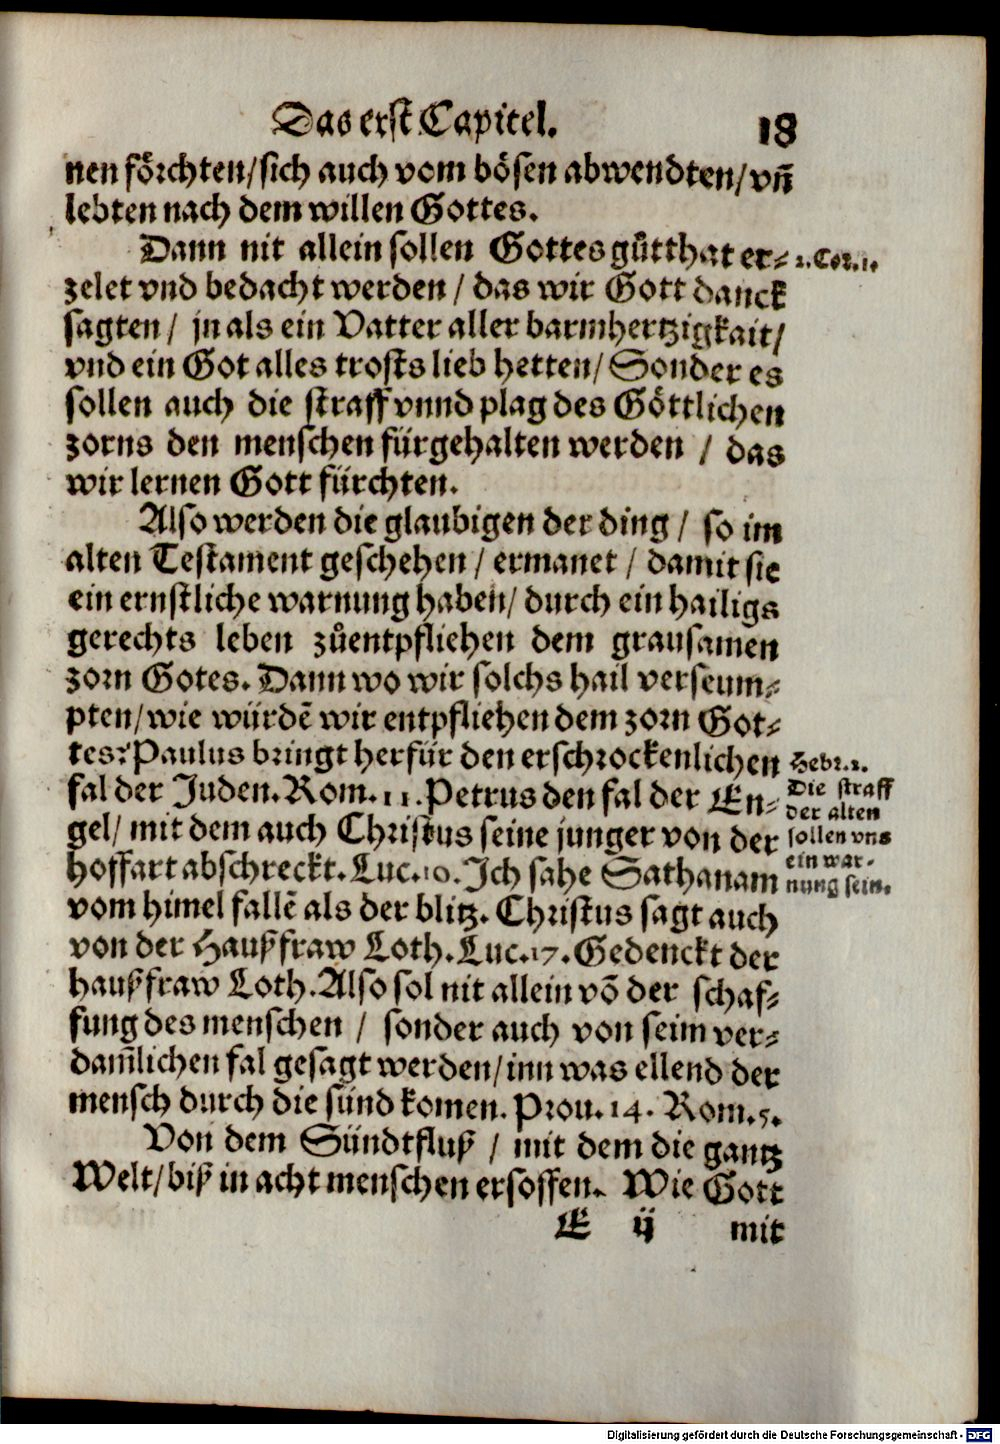 Das erst Capitel. 18
nen förchten/sich auch vom bösen abwendten/vñ
lebten nach dem willen Gottes.
Dann nit allein sollen Gottes gůtthat er-
1.Cor.11.
zelet vnd bedacht werden / das wir Gott danck
sagten / jn als ein Vatter aller barmhertzigkait/
vnd ein Got alles trosts lieb hetten/ Sonder es
sollen auch die straff vnnd plag des Göttlichen
zorns den menschen fürgehalten werden / das
wir lernen Gott fürchten.
Also werden die glaubigen der ding / so im
alten Testament geschehen / ermanet / damit sie
ein ernstliche warnung haben/ durch ein hailigs
gerechts leben zůentpfliehen dem grausamen
zorn Gotes. Dann wo wir solchs hail verseum-
pten/wie würdẽ wir entpfliehen dem zorn Got-
tes? Paulus bringt herfür den erschrockenlichen
fal der Juden. Rom. 11. Petrus den fal der En-
gel/ mit dem auch Christus seine junger von der
hoffart abschreckt. Luc.10. Ich sahe Sathanam
vom himel fallẽ als der blitz. Christus sagt auch
von der Haußfraw Loth. Luc.17. Gedenckt der
haußfraw Loth. Also sol nit allein võ der schaf-
fung des menschen / sonder auch von seim ver-
dam̃lichen fal gesagt werden/inn was ellend der
mensch durch die sünd komen. Prou. 14. Rom.5.
Von dem Sündtfluß / mit dem die gantz
Welt/biß in acht menschen ersoffen. Wie Gott
E ij mit
Hebr.2.
Die straff
der alten
sollen vns
ein war-
nung sein.
Digitalisierung gefördert durch die Deutsche Forschungsgemeinschaft - DFG